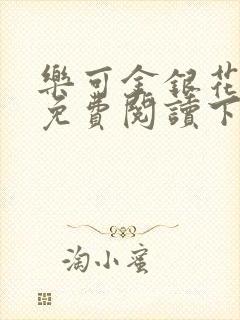 樂可金銀花
免費閱讀下
淘小蜜